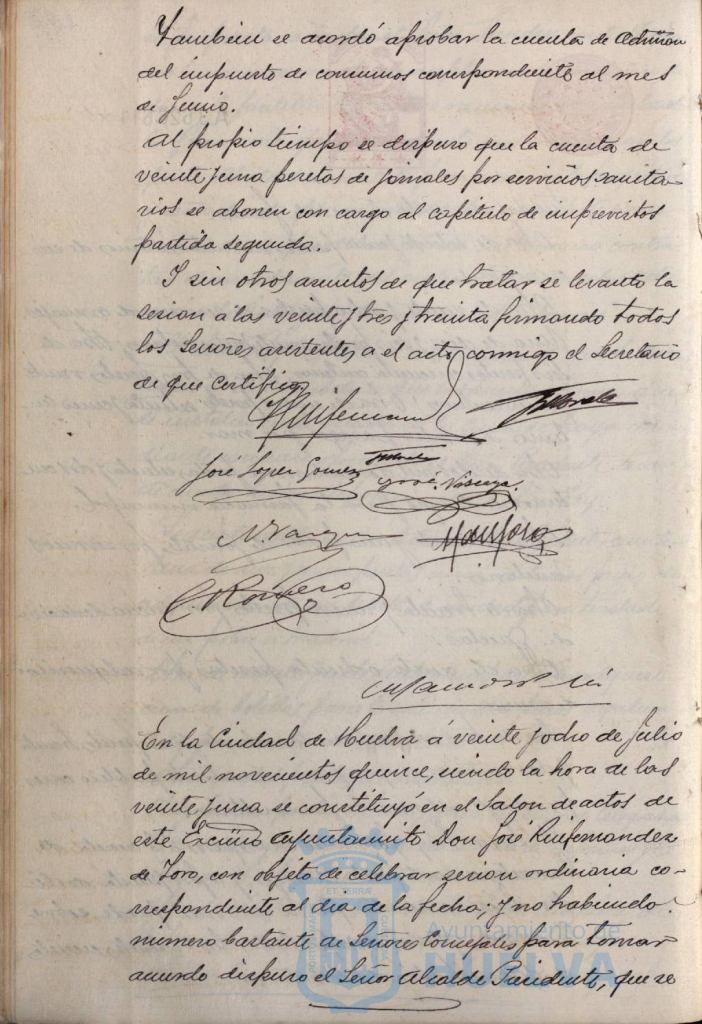 También se acordó aprobar la cuenta de Admon
del impuesto de consumos correspondiente al mes
de Junio.
Al propio tiempo se dispuso que la cuenta de
veinte y una pesetas de jornales por servicios sanita-
rios se abonen con cargo al capitulo de imprevistos
partida segunda.
Y sin otros asuntos de que tratar se levanto la
sesion á las veinte y tres y treinta firmando todos
los Señores asistentes a el acto conmigo el Secretario
de que certifico
José Lopez Gomez
N. Vazquez
C Romero
En la Ciudad de Huelva á veinte y ocho de Julio
de mil novecientos quince, siendo la hora de las
veinte y una se constituyó en el Salon de actos de
este Excmo Ayuntamiento Don José Ruifernandez
de Toro, con objeto de celebrar sesion ordinaria co-
rrespondiente al dia de la fecha; y no habiendo
número bastante de Señores Concejales para tomar
acuerdo dispuso el Señor Alcalde Presidente, que se
Ayuntamiento de
HUELVA